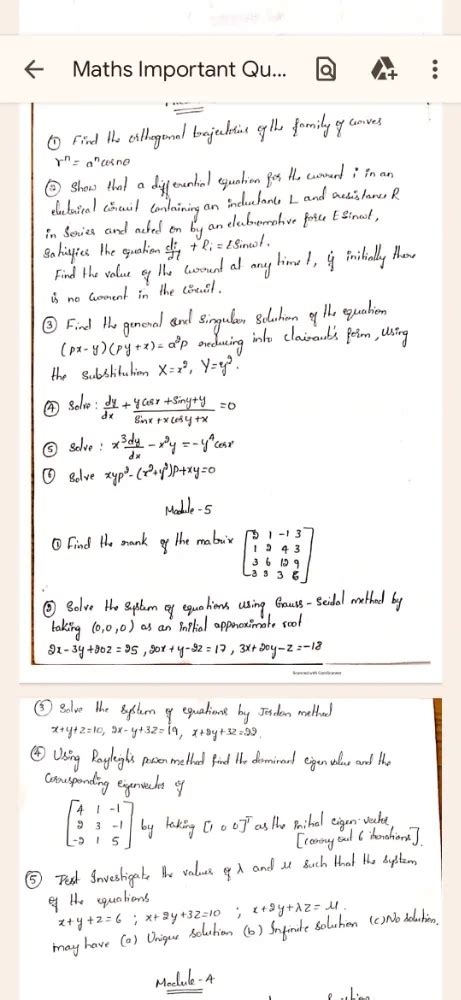 Maths Important Qu...
① Find the orthogonal trajectories of the family of curves
rⁿ = aⁿcosnθ
② Show that a differential equation for the current i in an
electrical circuit containing an inductance L and resistance R
in series and acted on by an electromotive force E sinωt,
Satisfies the equation L di/dt + Ri = E Sinωt.
Find the value of the current at any time t, if initially there
is no current in the circuit.
③ Find the general and singular solution of the equation
(px-y)(py+x)=a²p reducing into clairaut's form, using
the substitution X=x², Y=y².
④ Solve: dy/dx + (ycosx+siny+y)/(sinx+xcosy+x) = 0
⑤ Solve: x³dy/dx - x²y = -y⁴cosx
⑥ Solve xyp²-(x²+y²)p+xy=0
Module-5
① Find the rank of the matrix
2 1 -1 3
1 2 4 3
3 6 12 9
3 3 3 6
② Solve the system of equations using Gauss-Seidal method by
taking (0,0,0) as an initial approximate root
2x-3y+20z=25, 20x+y-2z=17, 3x+20y-z=-18
Scanned with CamScanner
③ Solve the system of equations by Jordan method
x+y+z=10, 2x-y+3z=19, x+2y+3z=22.
④ Using Rayleigh's power method find the dominant eigen value and the
Corresponding eigenvector of
4 1 -1
2 3 -1
-2 1 5
by taking [1 0 0]ᵀ as the initial eigen-vector
[carry out 6 iterations].
⑤ Investigate the values of λ and μ such that the system
of the equations
x+y+z=6 ; x+2y+3z=10 ; x+2y+λz=μ.
may have (a) Unique solution (b) Infinite solution (c) No solution.
Module-4